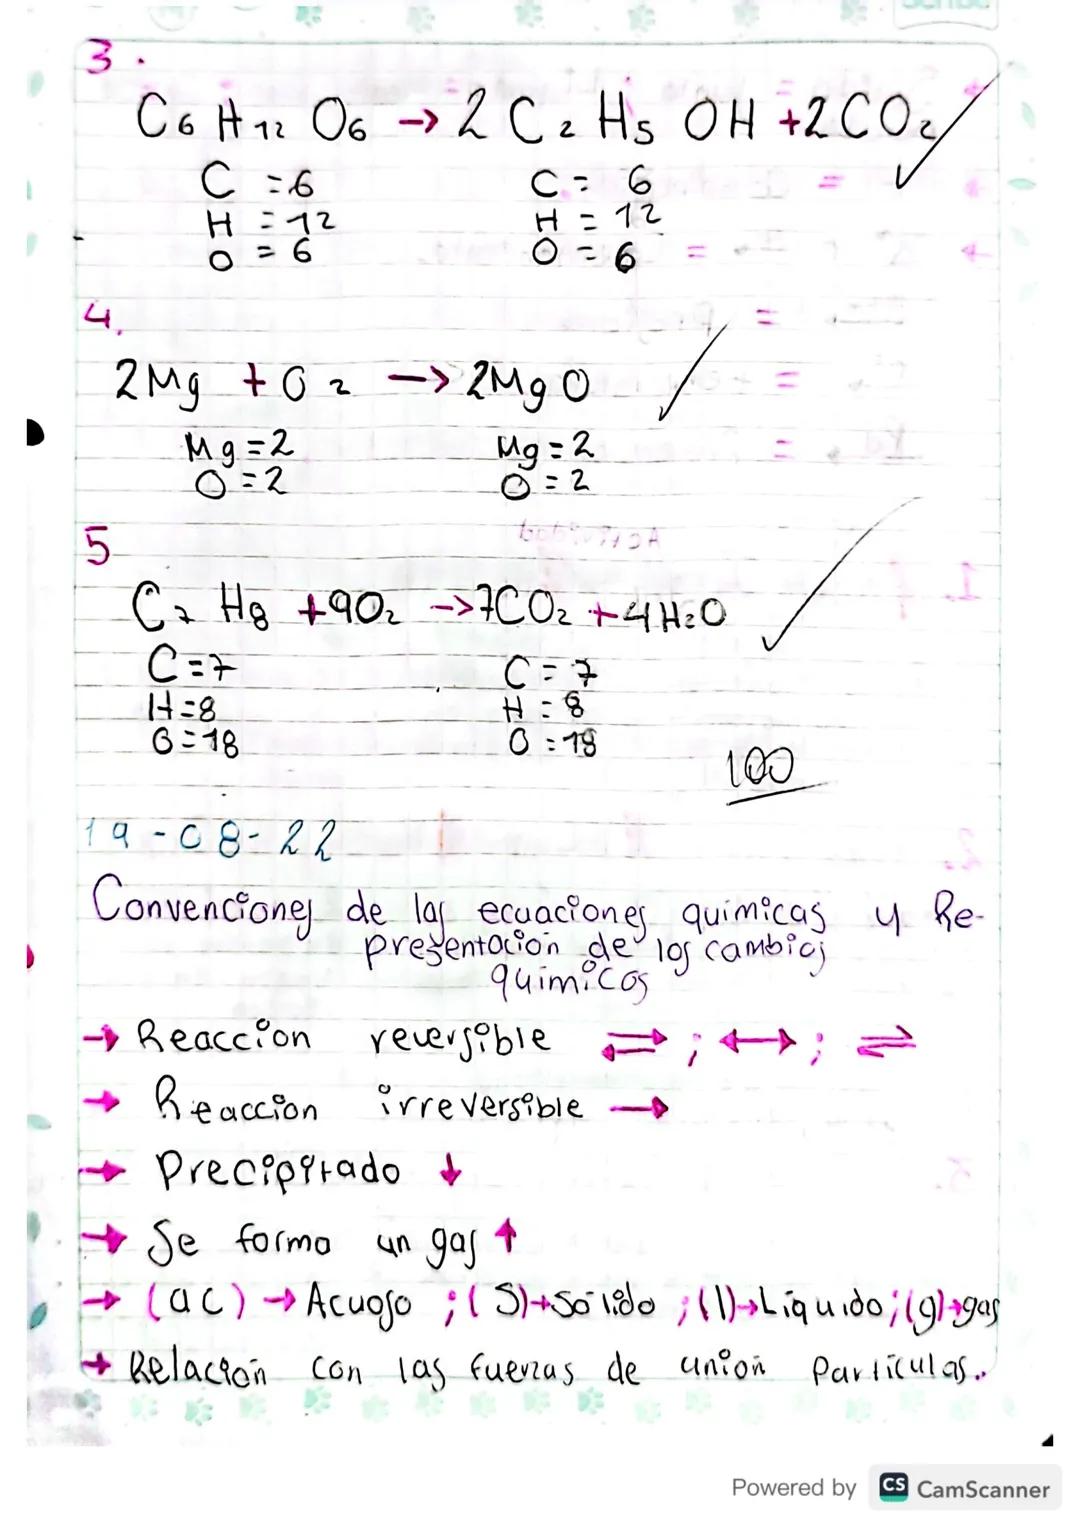 3.
C6 H12 O6 → 2 C2 H5 OH + 2CO2
C = 6 C = 6
H = 12 H = 12
O = 6 O = 6
4.
2Mg + O2 → 2MgO
Mg = 2 Mg = 2
O = 2 O = 2
5
C7 H8 + 9O2 → 7CO2 + 4H2O
C = 7 C = 7
H = 8 H = 8
O = 18 O = 18
100
19-08-22
Convenciones de las ecuaciones quimicas y Re-
presentación de los cambios
quimicos
→ Reaccion reversible ⇄ ; ↔ ; ⇌
→ Reaccion irreversible →
→ Precipitado ↓
→ Se forma un gas ↑
→ (ac) → Acuoso ; (S) → Sólido ; (l) → Líquido ; (g) → gas
→ Relación con las fuerzas de unión Partículas..
Powered by CS CamScanner